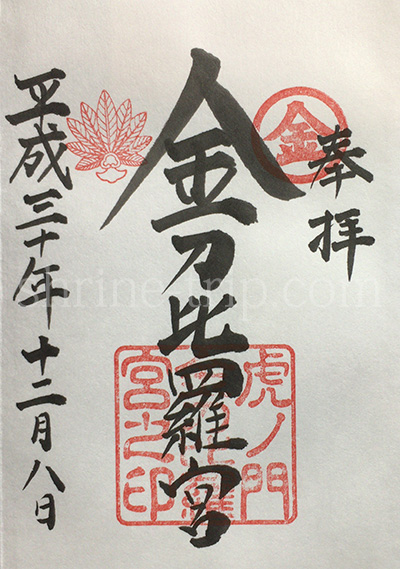 奉拝
金
金刀比羅宮
虎ノ門
金刀比羅
宮之印
平成三十年十二月八日
shrine-trip.com